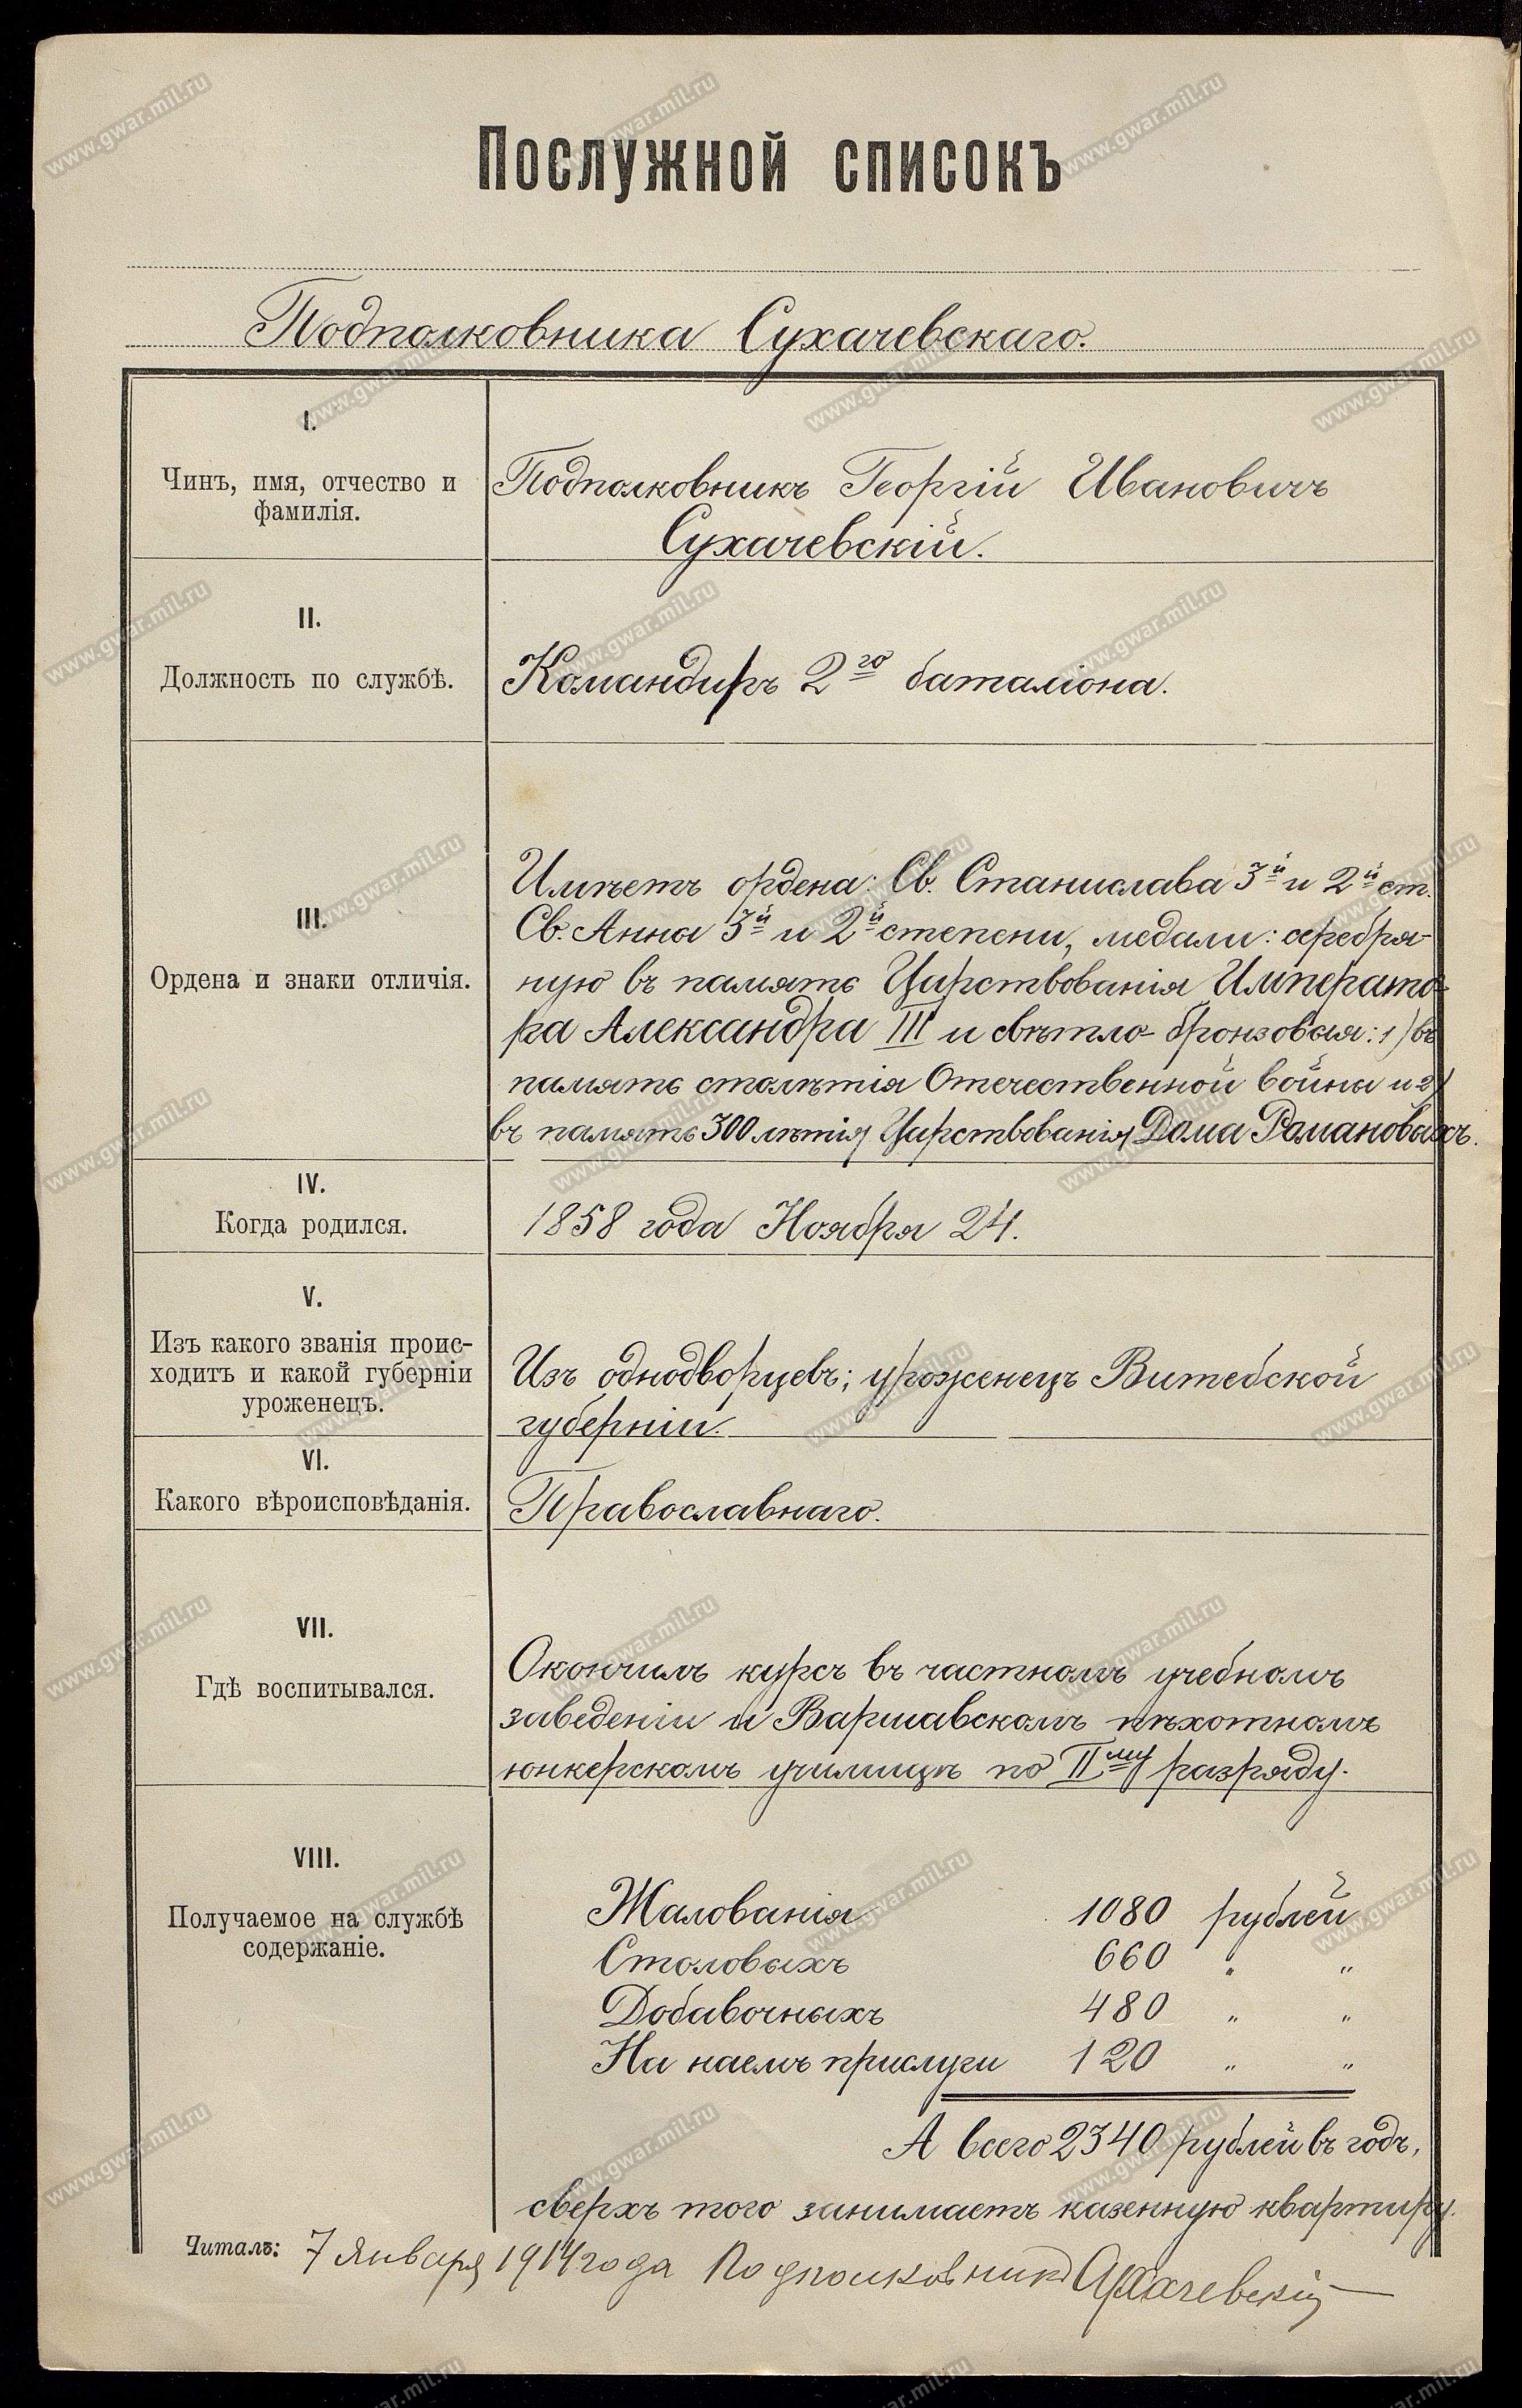 Послужной списокъ
Подполковника Сухачевскаго.
I.
Чинъ, имя, отчество и
фамилія.
Подполковникъ Георгій Ивановичъ
Сухачевскій.
II.
Должность по службѣ.
Командиръ 2го баталіона.
III.
Ордена и знаки отличія.
Имѣетъ ордена: Св. Станислава 3й и 2й ст.
Св. Анны 3й и 2й степени, медали: серебря-
ную въ память Царствованія Императо-
ра Александра III и свѣтло-бронзовыя: 1) въ
память столѣтія Отечественной войны и 2)
въ память 300 лѣтія Царствованія Дома Романовыхъ.
IV.
Когда родился.
1858 года Ноября 24.
V.
Изъ какого званія проис-
ходитъ и какой губерніи
уроженецъ.
Изъ однодворцевъ; уроженецъ Витебской
губерніи.
VI.
Какого вѣроисповѣданія.
Православнаго.
VII.
Гдѣ воспитывался.
Окончилъ курсъ въ частномъ учебномъ
заведеніи и Варшавскомъ пѣхотномъ
юнкерскомъ училищѣ по IIму разряду.
VIII.
Получаемое на службѣ
содержаніе.
Жалованія 1080 рублей
Столовыхъ 660 " "
Добавочныхъ 480 " "
На наемъ прислуги 120 " "
А всего 2340 рублей въ годъ,
сверхъ того занимаетъ казенную квартиру.
Читалъ: 7 Января 1914 года Подполковникъ Сухачевскій
www.gwar.mil.ru